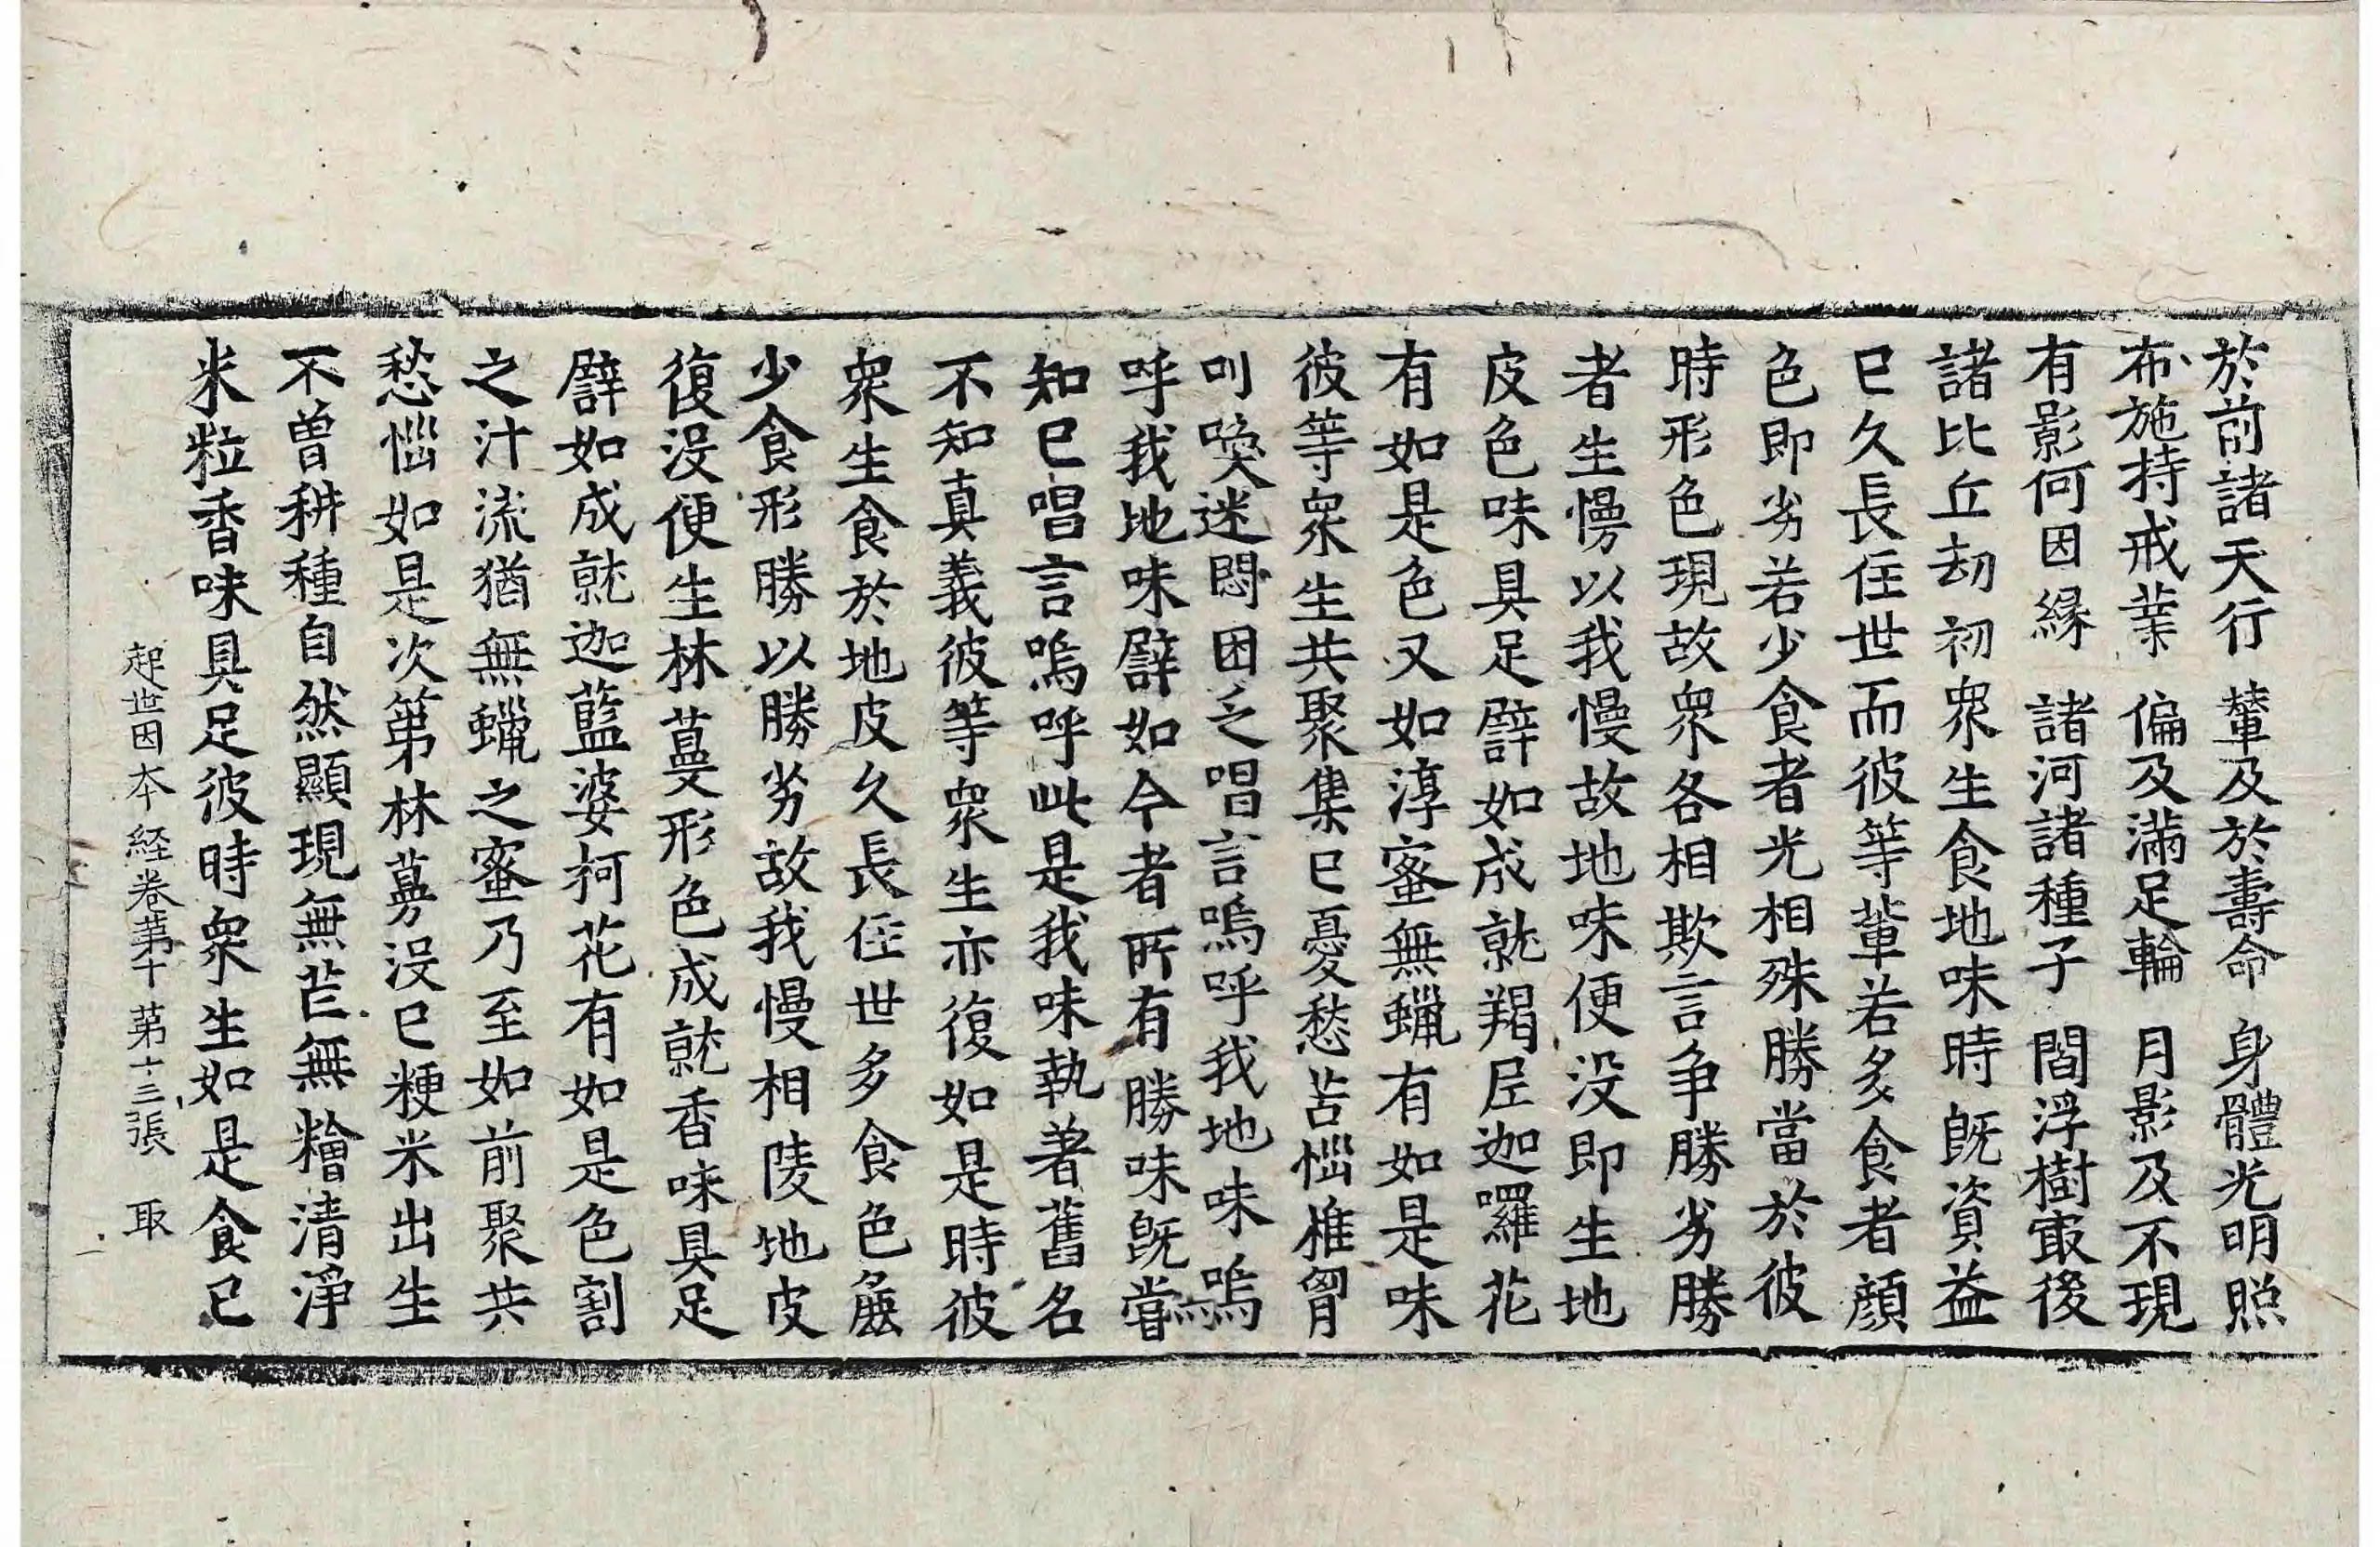 於前諸天行　輦及於壽命　身體光明照
布施持戒業　偏及滿足輪　月影及不現
有影何因緣　諸河諸種子　閻浮樹㝡後
諸比丘劫初衆生食地味時旣資益
已久長住世而彼等輩若多食者顔
色即劣若少食者光相殊勝當於彼
時形色現故衆各相欺言争勝劣勝
者生慢以我慢故地味便没即生地
皮色味具足譬如成就羯尼迦囉花
有如是色又如淳蜜無蠟有如是味
彼等衆生共聚集已憂愁苦惱椎胷
叫喚迷悶困乏唱言嗚呼我地味嗚
呼我地味譬如今者所有勝味旣嘗
知已唱言嗚呼此是我味執著舊名
不知真義彼等衆生亦復如是時彼
衆生食於地皮久長住世多食色麁
少食形勝以勝劣故我慢相陵地皮
復没便生林蔓形色成就香味具足
譬如成就迦藍婆柯花有如是色割
之汁流猶無蠟之蜜乃至如前聚共
愁惱如是次第林蔓没已粳米出生
不曾耕種自然顯現無芒無䊠清淨
米粒香味具足彼時衆生如是食已
起世因本経卷第十　第十三張　取